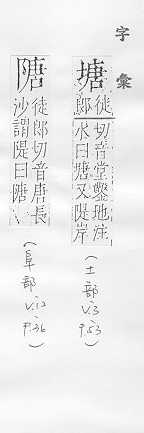 字彙
塘
徒郎切音堂鑿地注水曰塘又隄岸
(土部
V.3
P.53)
隚
徒郎切音唐長沙謂隄曰隚
(阜部
V.12
P.36)